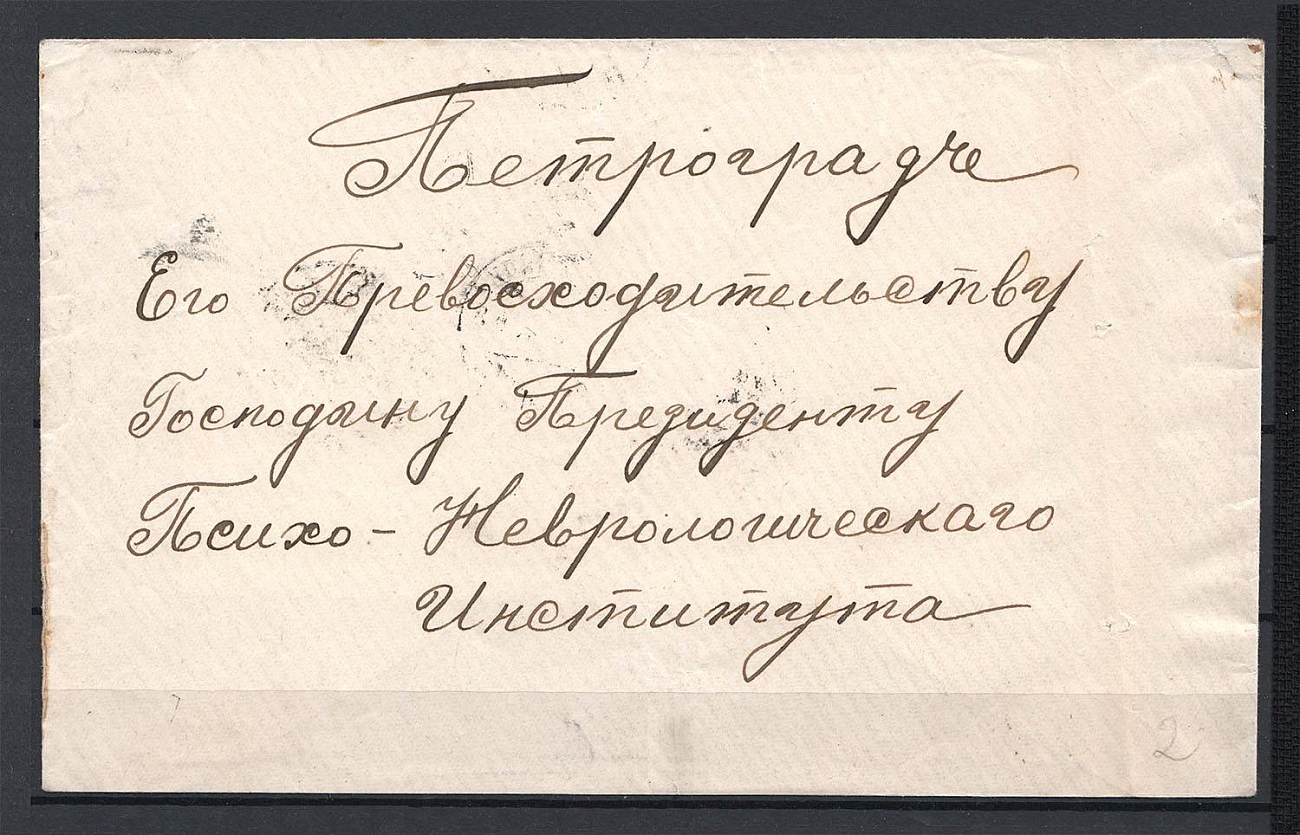 Петроградъ
Его Превосходительству
Господину Президенту
Психо-Неврологическаго
Института
2